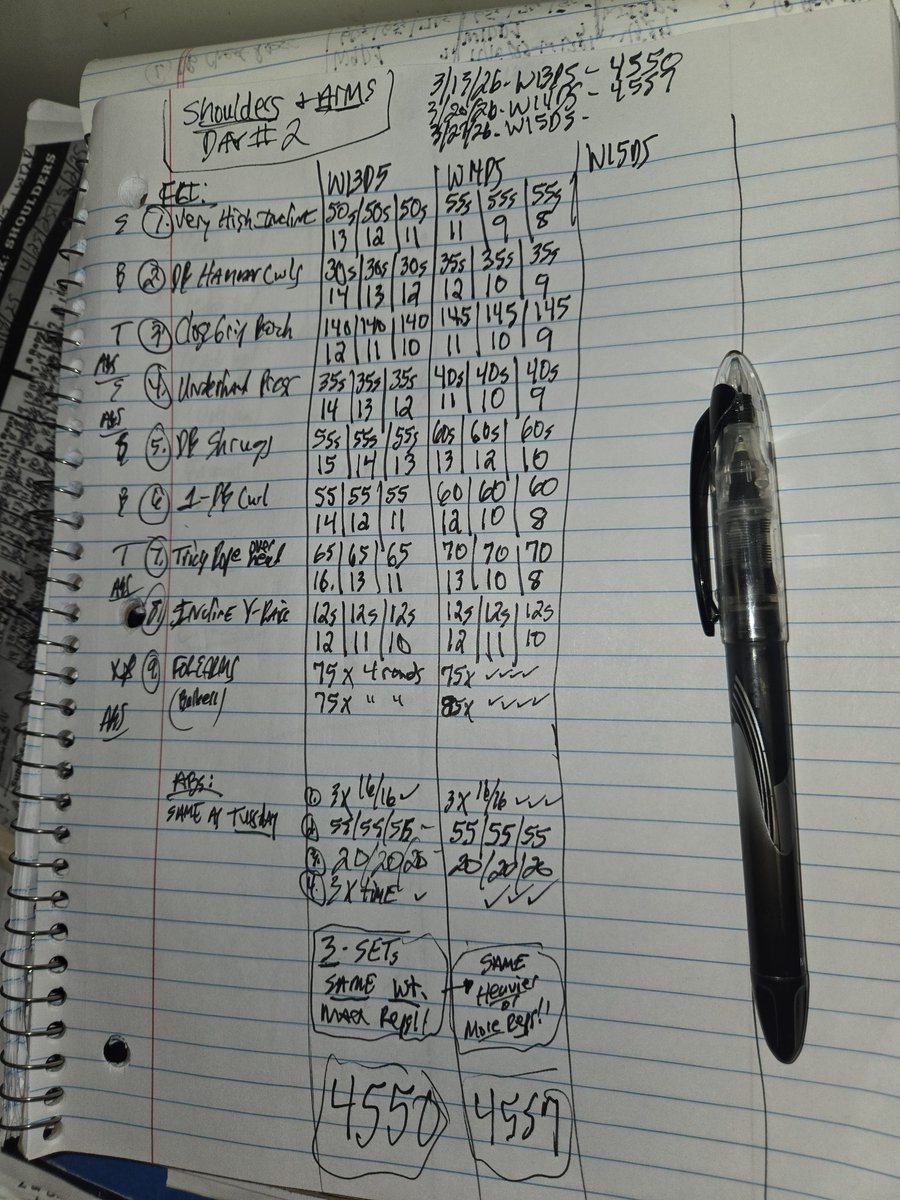 Shoulders & ARMS
DAY # 2
3/13/26 - W13D5 - 4550
3/20/26 - W14D5 - 4557
3/27/26 - W15D5 -
W13D5 W14D5 W15D5
FRI:
S 1. Very High Incline 50s 50s 50s 55s 55s 55s
13 12 11 11 9 8
B 2. DB HAMMER Curls 30s 30s 30s 35s 35s 35s
14 13 12 12 10 9
T 3. Close Grip Bench 140 140 140 145 145 145
12 11 10 11 10 9
ABS
S 4. Underhand Press 35s 35s 35s 40s 40s 40s
14 13 12 11 10 9
ABS
5. DB Shrugs 55s 55s 55s 60s 60s 60s
15 14 13 13 12 10
B 6. 1-DB Curl 55 55 55 60 60 60
14 12 11 12 10 8
T 7. Tricep Rope over head 65 65 65 70 70 70
16 13 11 13 10 8
ABS
8. Incline Y-Raise 12s 12s 12s 12s 12s 12s
12 11 10 12 11 10
9. FOREARMS 75 x 4 rounds 75x ✓✓✓✓
(Barbell) 75x " " 85x ✓✓✓✓
ABS
ABS:
SAME AS Tuesday
1. 3x 16/16 ✓ 3x 16/16 ✓✓✓
2. 55/55/55 - 55/55/55
3. 20/20/20 - 20/20/20
4. 3 x TIME ✓ ✓✓✓
3 - SETS
SAME Wt.
Max Reps!!
SAME
Heavier
or
More Reps!!
4550 4557
SHOULDERS